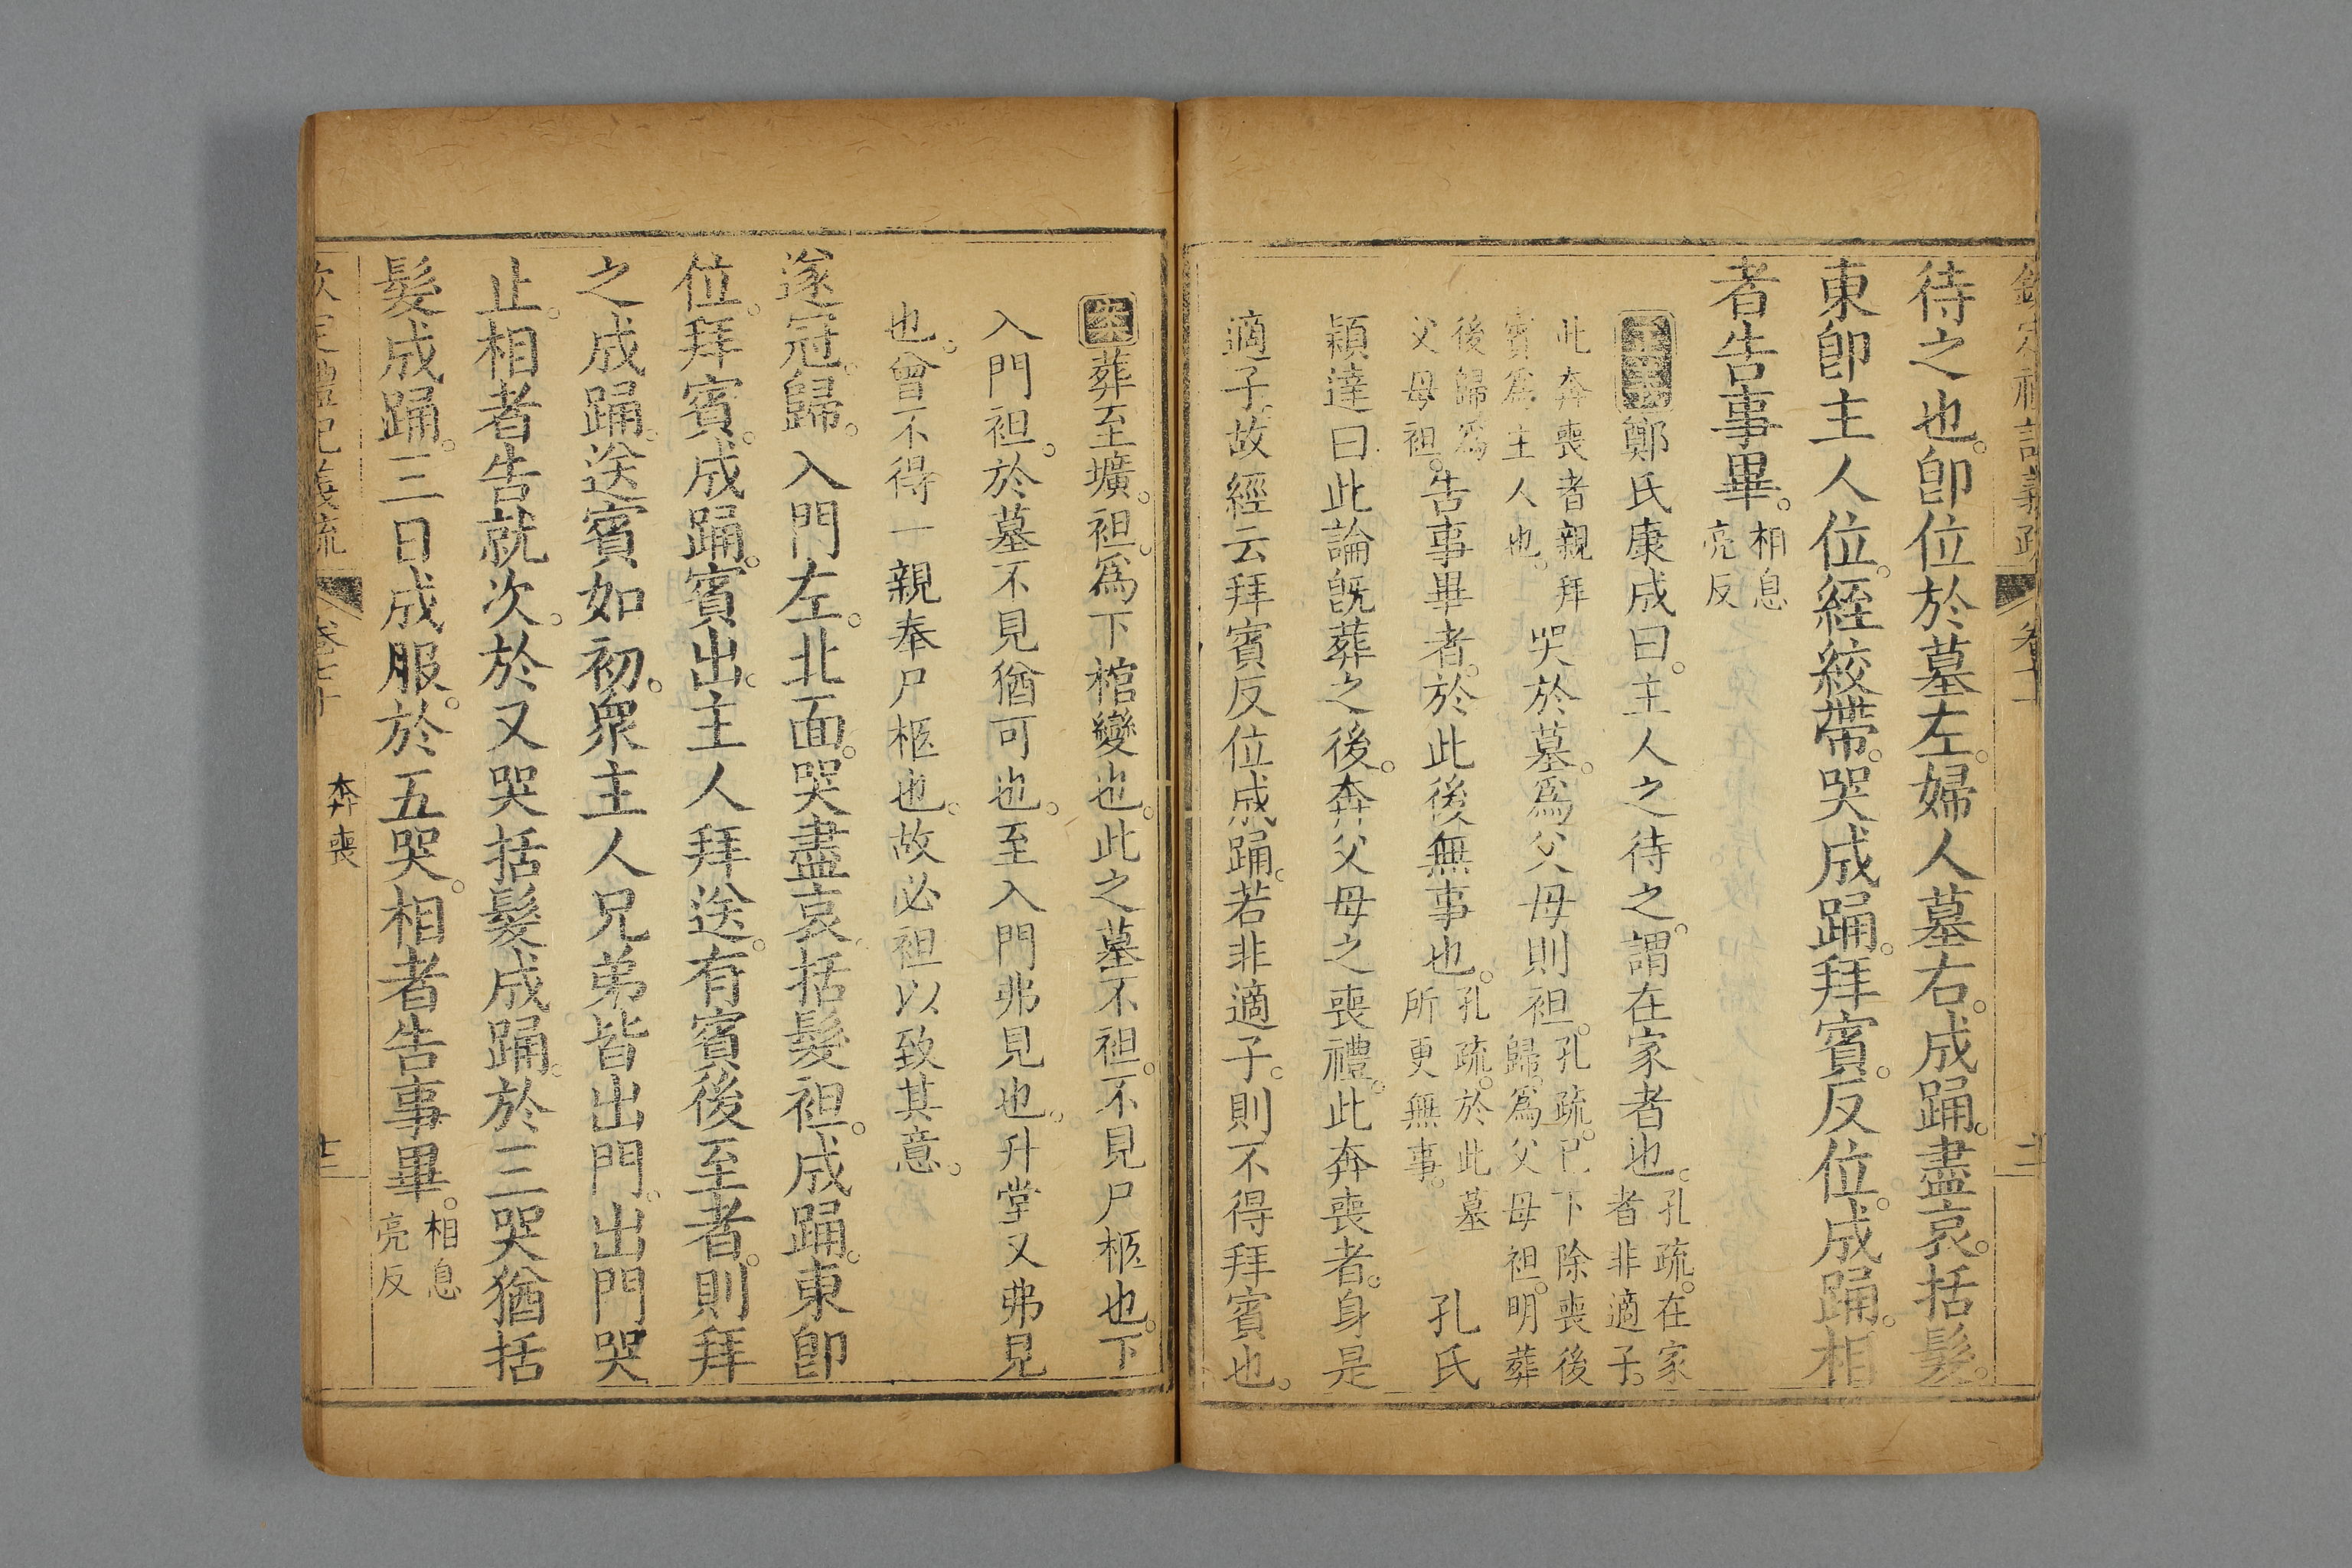 待之也。卽位於墓左。婦人墓右。成踊。盡哀。括髮。
東卽主人位。絰絞帶。哭成踊。拜賓。反位。成踊。相
者告事畢。相息亮反
鄭氏康成曰。主人之待之。謂在家者也。孔疏。在家者非適子。
此奔喪者親拜賓爲主人也。哭於墓。爲父母則袒。孔疏。已下除喪後歸爲父母袒。明葬
後歸爲父母袒。告事畢者。於此後無事也。孔疏。於此墓所更無事。孔氏
穎達曰此論旣葬之後。奔父母之喪禮。此奔喪者。身是
適子。故經云拜賓反位成踊。若非適子。則不得拜賓也。
葬至壙。袒。爲下棺變也。此之墓不袒。不見尸柩也。下
入門袒。於墓不見猶可也。至入門弗見也。升堂又弗見
也。曾不得一親奉尸柩也。故必袒以致其意。
遂冠。歸。入門左。北面。哭盡哀。括髮袒。成踊。東卽
位。拜賓。成踊。賓出。主人拜送。有賓後至者。則拜
之成踊。送賓如初。衆主人兄弟皆出門。出門哭
止。相者告就次。於又哭括髮成踊。於三哭猶括
髮成踊。三日成服。於五哭。相者告事畢。相息亮反
欽定禮記義疏 卷七十 奔喪